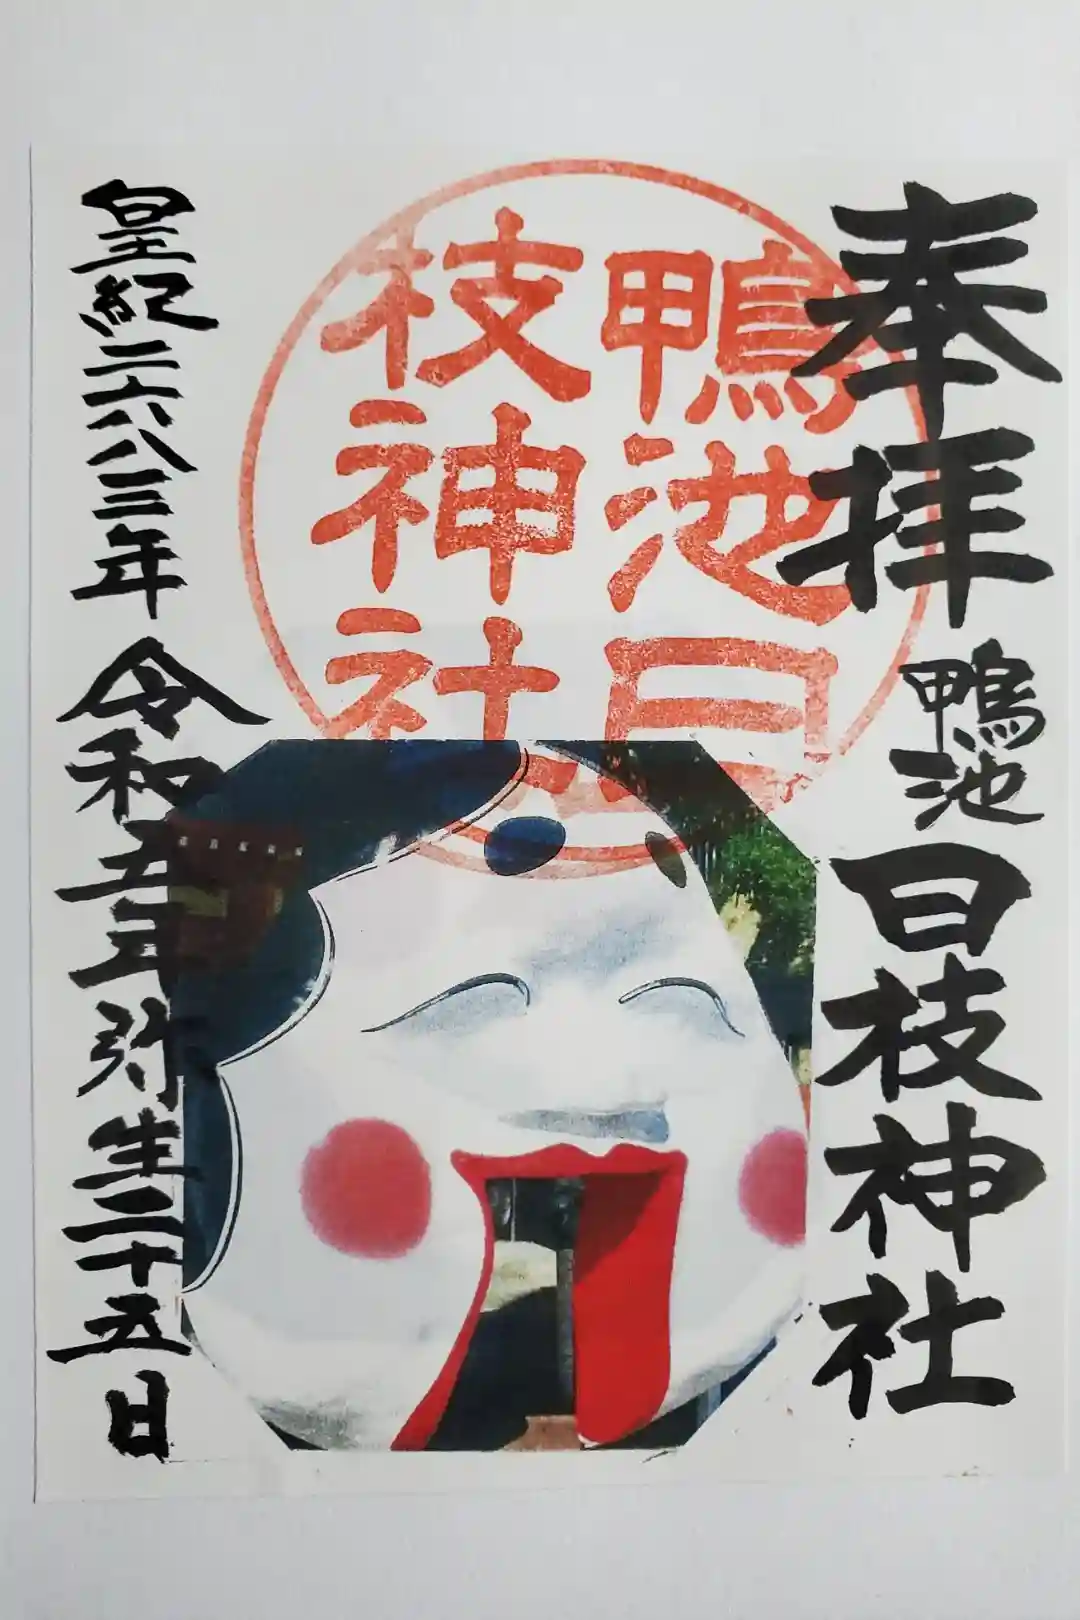 奉拝
鴨池日枝神社
鴨池日
枝神社
皇紀二六八三年 令和五年弥生二十五日